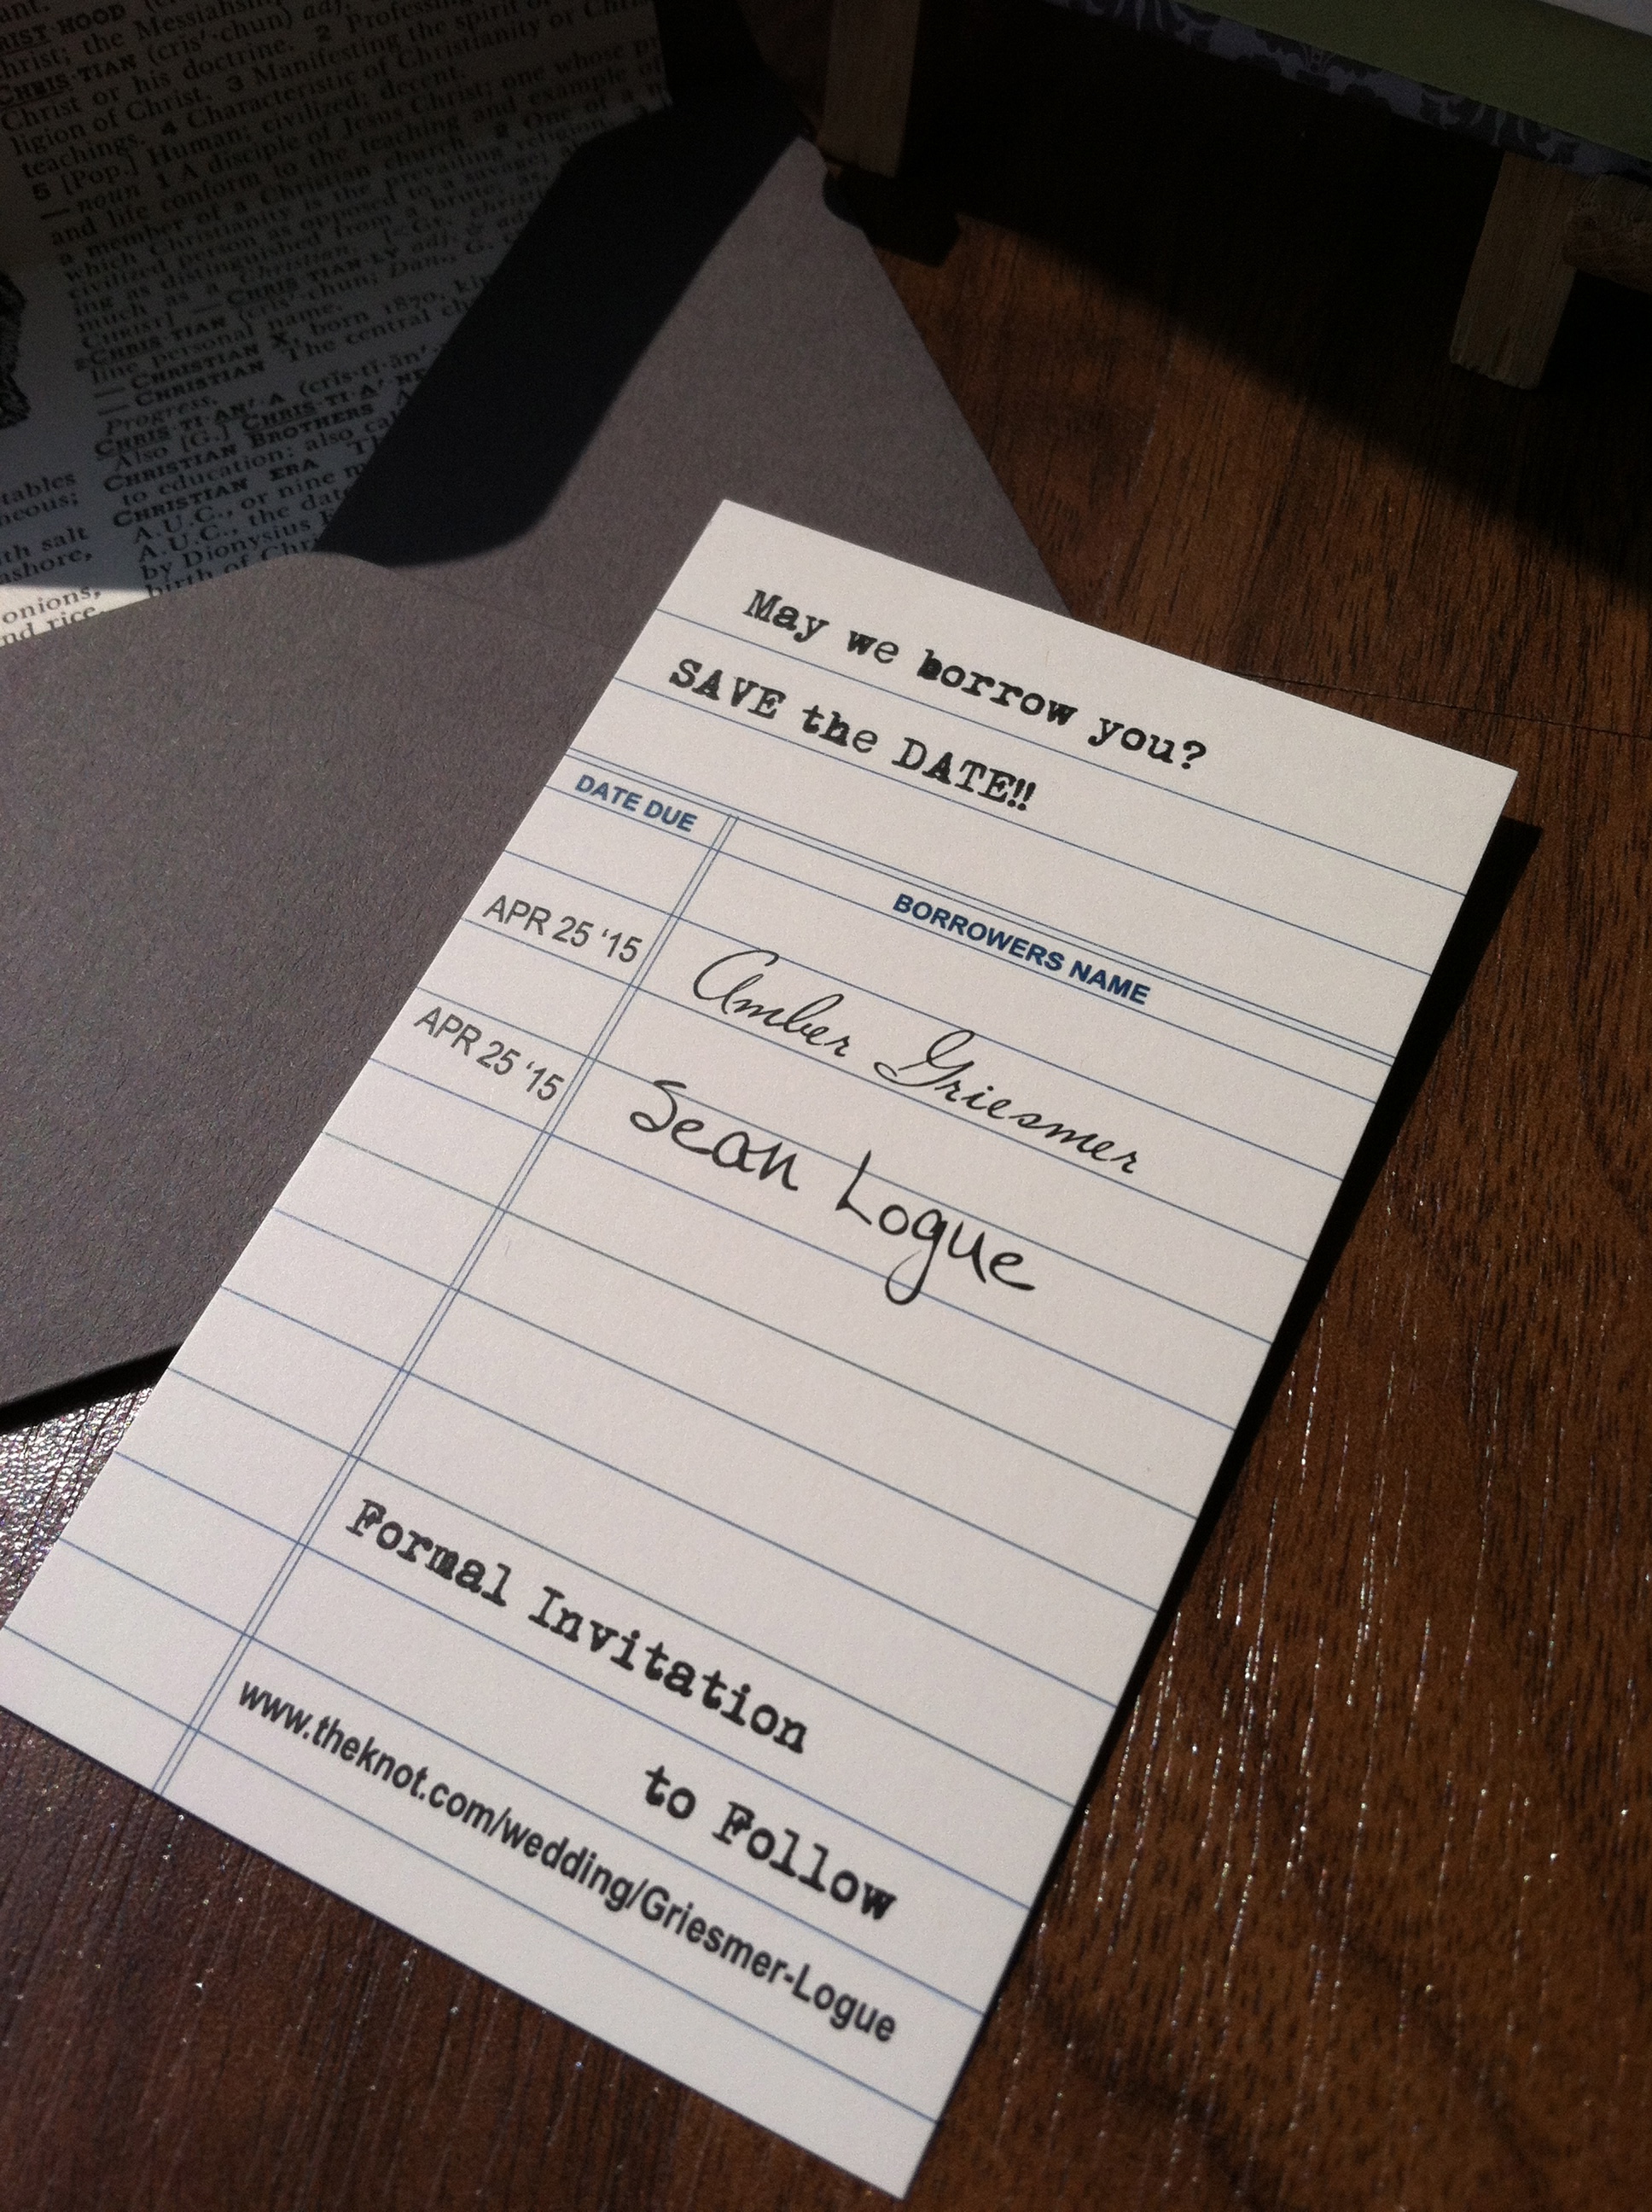 RIST HOOD
Christ; the Messiahship
CHRIS TIAN (cris'-chun) adj.
Christ or his doctrine. 2 Professing
ligion of Christ. 3 Manifesting the spirit of
teachings. 4 Characteristic of Christianity or
5 [Pop.] Human; civilized; decent.
— noun 1 A disciple of Jesus Christ; one whose
and life conform to the teaching and example of
a member of a Christian church. 2 One of a
which Christianity is the prevailing religion
civilized person as opposed to a savage;
ing as distinguished from a brute; as,
much as a Christian. [<Gr. christ
CHRIST] — CHRIS TIAN-LY adj. &
CHRIS TIAN (cris'-chun; Dan., G.
line personal name.
— CHRISTIAN X, born 1870,
— CHRISTIAN The central
Progress.
CHRIS·TI·AN'·A (cris-ti-än'-
Also [G.] CHRIS·TI·A'·NE
CHRISTIAN BROTHERS
to education; also
CHRISTIAN ERA
A.U.C., or nine
A.U.C., the date
by Dionysius
birth of
tables
neous;
th salt
ashore,
onions,
nd rice
May we borrow you?
SAVE the DATE!!
DATE DUE BORROWERS NAME
APR 25 ‘15 Amber Griesmer
APR 25 ‘15 Sean Logue
Formal Invitation
to Follow
www.theknot.com/wedding/Griesmer-Logue